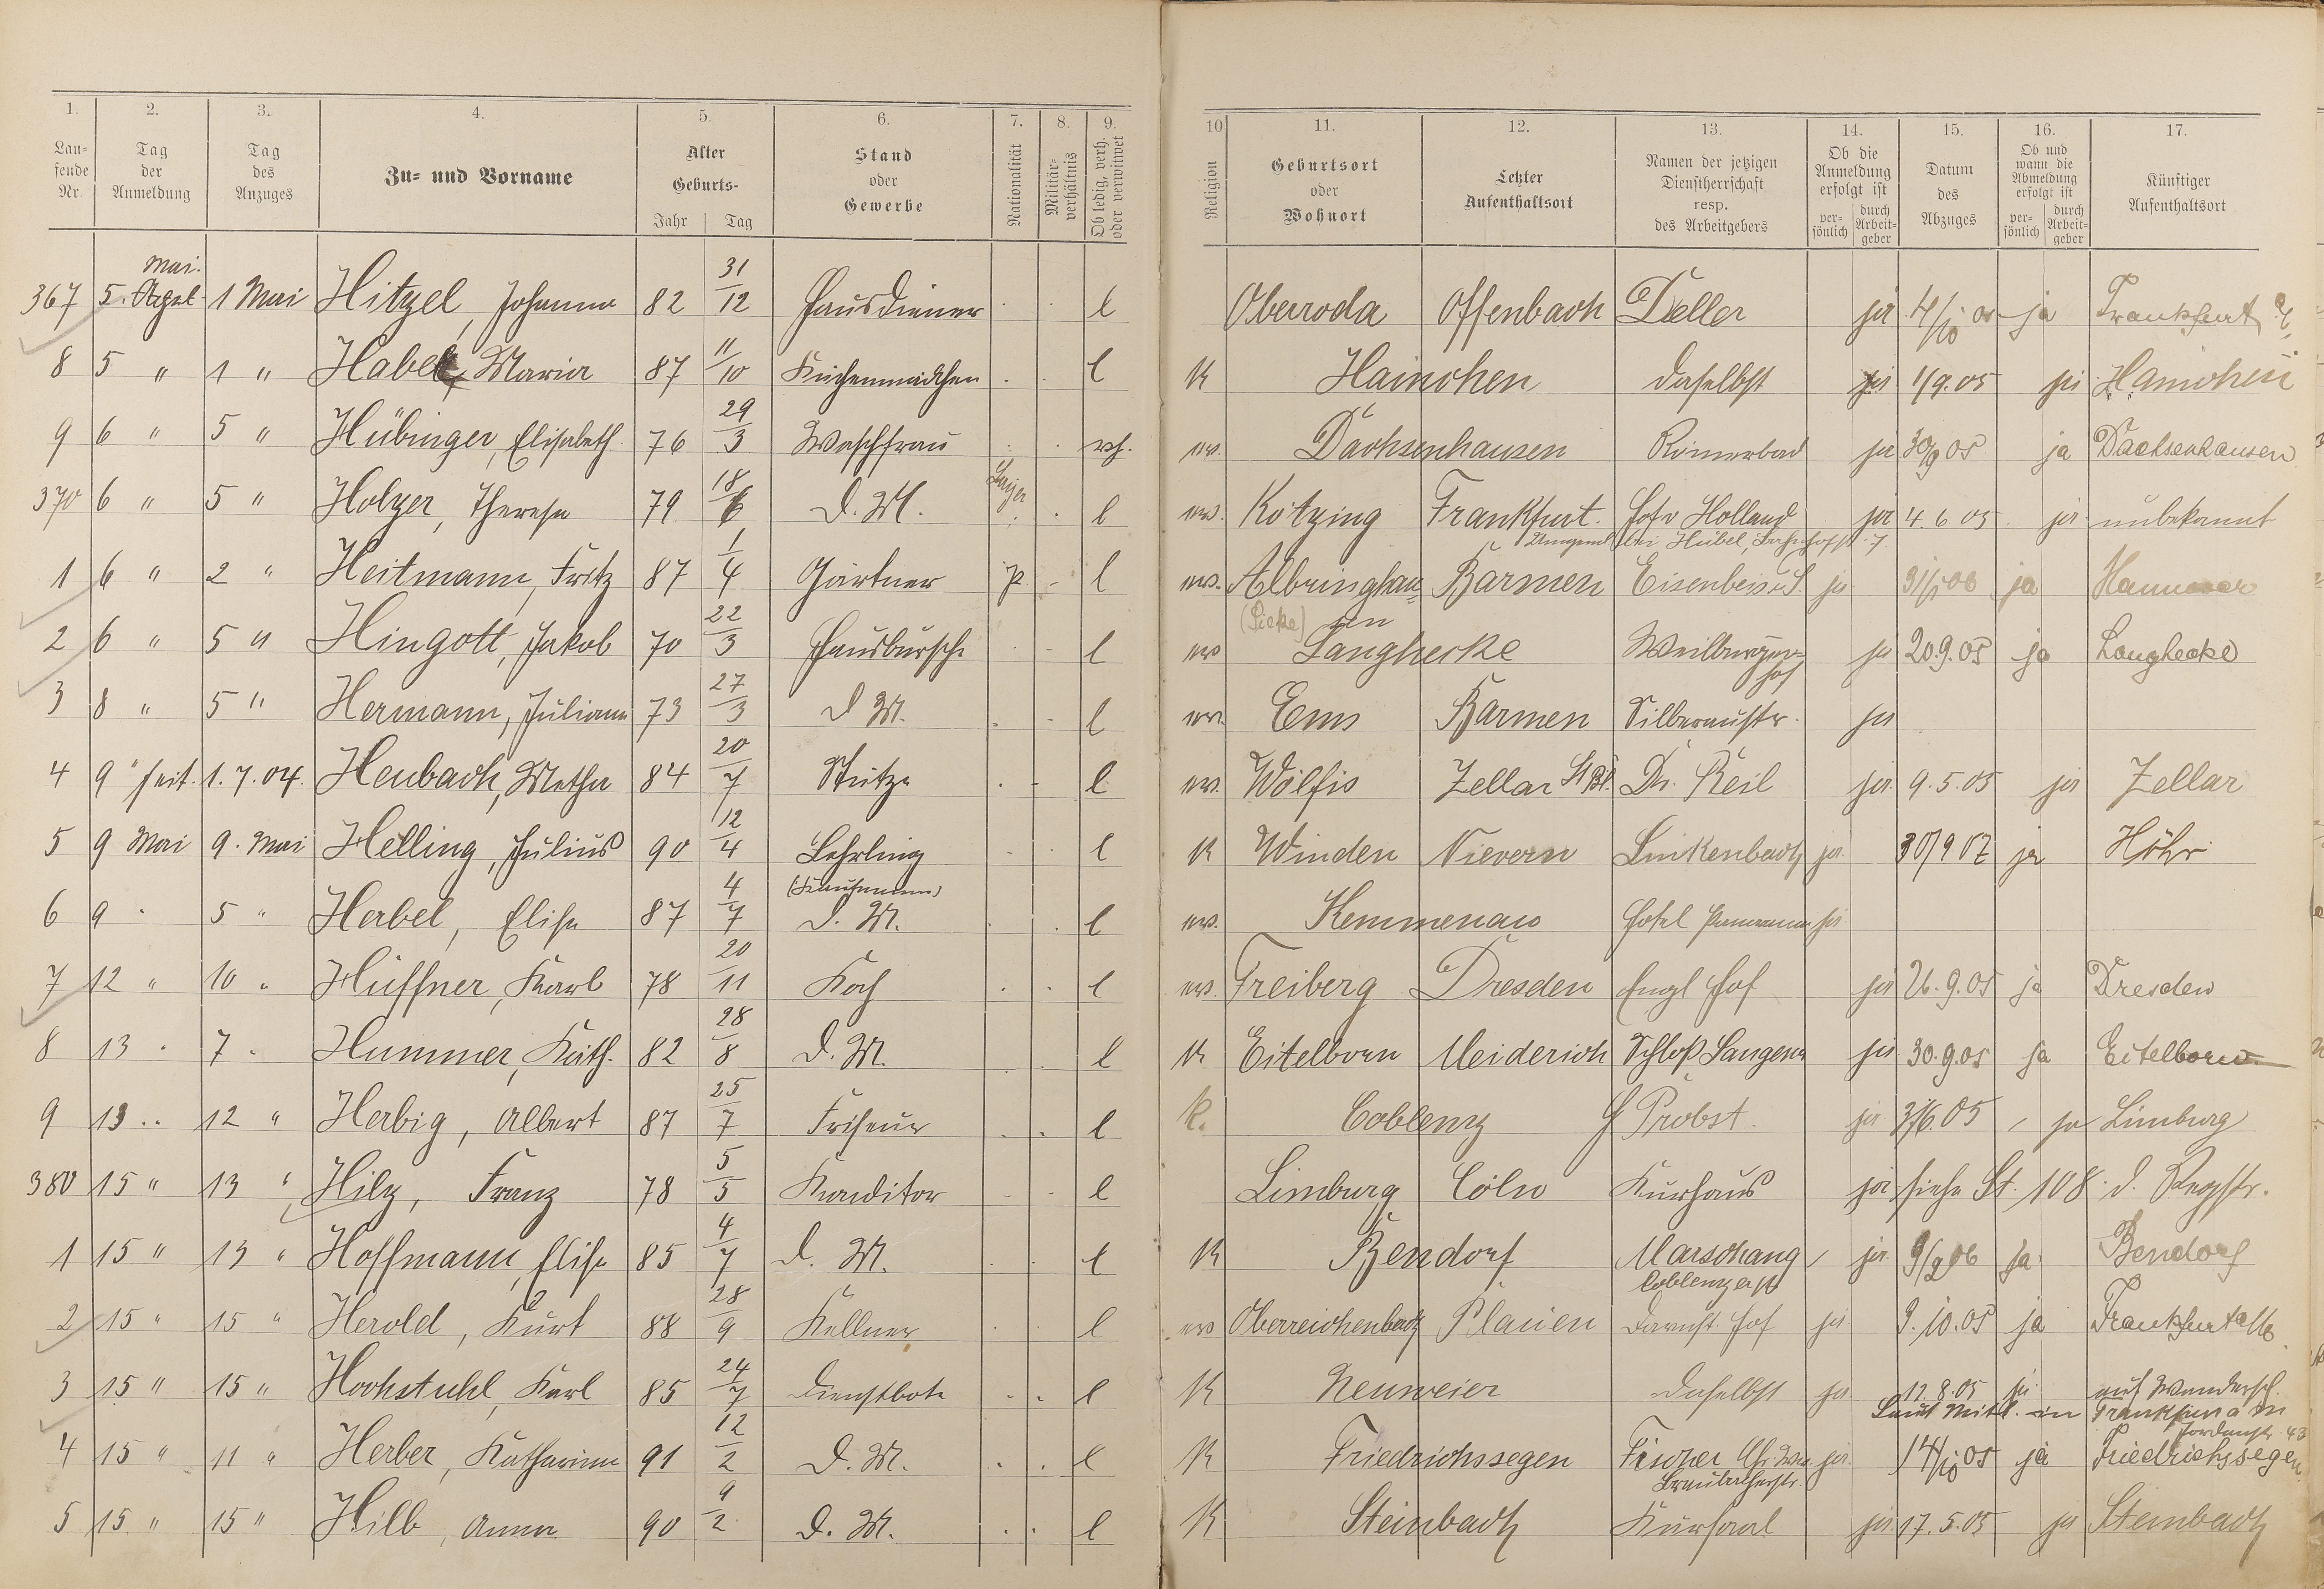 1. 2. 3. 4. 5. 6. 7. 8. 9. 10 11. 12. 13. 14. 15. 16. 17.
Lau-
fende
Nr.
Tag
der
Anmeldung
Tag
des
Anzuges
Zu- und Vorname
Alter
Geburts-
Jahr Tag
Stand
oder
Gewerbe
Nationalität
Militär-
verhältnis
Ob ledig, verh.
oder verwitwet
Religion
Geburtsort
oder
Wohnort
Letzter
Aufenthaltsort
Namen der jetzigen
Dienstherrschaft
resp.
des Arbeitgebers
Ob die
Anmeldung
erfolgt ist
per-
sönlich
durch
Arbeit-
geber
Datum
des
Abzuges
Ob und
wann die
Abmeldung
erfolgt ist
per-
sönlich
durch
Arbeit-
geber
Künftiger
Aufenthaltsort
Mai.
367 5. April 1 Mai Hitzel, Johann 82 31/12 Hausdiener l Oberroda Offenbach Deller ja 4/10 05 ja Frankfurt
8 5 " 1 " Habel, Maria 87 11/10 Küchenmädchen l K Hainchen daselbst ja 1/9.05 ja Hainchen
9 6 " 5 " Hübinger, Elisabeth 76 29/3 Waschfrau vh. ev. Dachsenhausen Römerbad ja 30/9 05 ja Dachsenhausen
370 6 " 5 " Holzer, Therese 79 18/6 D. M. Bayer l ev. Kötzing Frankfurt. Hof v Holland ja 4.6 05 ja unbekannt
bei Hübel, Bahnhofstr. 7
1 6 " 2 " Heitmann, Fritz 87 1/4 Gärtner p - l ev. Albringhau= Barmen Eisenbeis u S. ja 31/1 06 ja Hannover
(Sieke) sen
2 6 " 5 " Hingott, Jakob 70 22/3 Hausbursche l ev Langhecke Weilburger ja 20.9.05 ja Langhecke
hof
3 8 " 5 " Hermann, Juliane 73 27/3 D M. l ev. Ems Barmen Silberaustr. ja
4 9 " seit. 1.7.04. Heubach, Metha 84 20/7 Stütze l ev. Wölfis Zellar St Bl. Dr. Reil ja 9.5.05 ja Zellar
5 9 Mai 9. Mai Helling, Julius 90 12/4 Lehrling l K Winden Nievern Linkenbach ja 30/9 07 ja Höhr
(Kaufmann)
6 9 " 5 " Herbel, Elise 87 4/7 D. M. l ev. Kemmenau Hotel Panorama ja
7 12 " 10 " Hüffner, Karl 78 20/11 Koch l ev. Freiberg Dresden Engl Hof ja 26.9.05 ja Dresden
8 13 " 7 " Hummer, Käth. 82 28/8 D. M. l K Eitelborn Meiderich Schloß Langenau ja 30.9.05 ja Eitelborn
9 13 " 12 " Herbig, Albert 87 25/7 Friseur l K. Coblenz Probst. ja 3/6.05 ja Limburg
380 15 " 13 " Hilz, Franz 78 5/5 Konditor l Limburg Cöln Kurhaus ja siehe St. 108. d. Regstr.
1 15 " 13 " Hoffmann, Elise 85 4/7 D. M. l K Bendorf Marschang ja 9/2 06 ja Bendorf
Coblenzerst
2 15 " 15 " Herold, Kurt 88 28/9 Kellner l ev Oberreichenbach Plauen Darmst. Hof ja 9.10.05 ja Frankfurt a/M.
3 15 " 15 " Hochstuhl, Karl 85 24/7 Dienstbote l K Neuweier daselbst ja 12.8.05 ja auf Wandersch.
Laut Mittl. in Frankfurt a M
Jordanstr. 43
4 15 " 11 " Herber, Katharina 91 12/2 D. M. l K Friedrichssegen Fischer Chr Ww. ja 14/10 05 ja Friedrichssegen
Braubacherstr.
5 15 " 15 " Hilb, Anna 90 9/2 D. M. l K Steinbach Kursaal ja 17.5.05 ja Steinbach